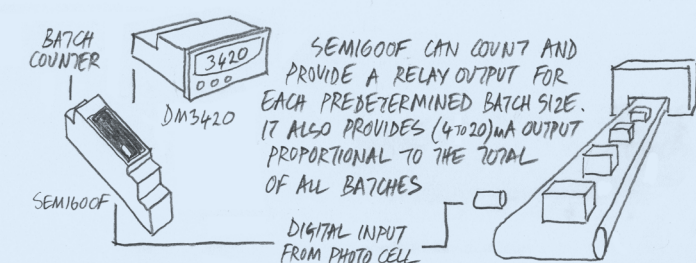 BATCH
COUNTER
3420
DM3420
SEM1600F
SEM1600F CAN COUNT AND
PROVIDE A RELAY OUTPUT FOR
EACH PREDETERMINED BATCH SIZE.
IT ALSO PROVIDES (4 TO 20)mA OUTPUT
PROPORTIONAL TO THE TOTAL
OF ALL BATCHES
DIGITAL INPUT
FROM PHOTO CELL